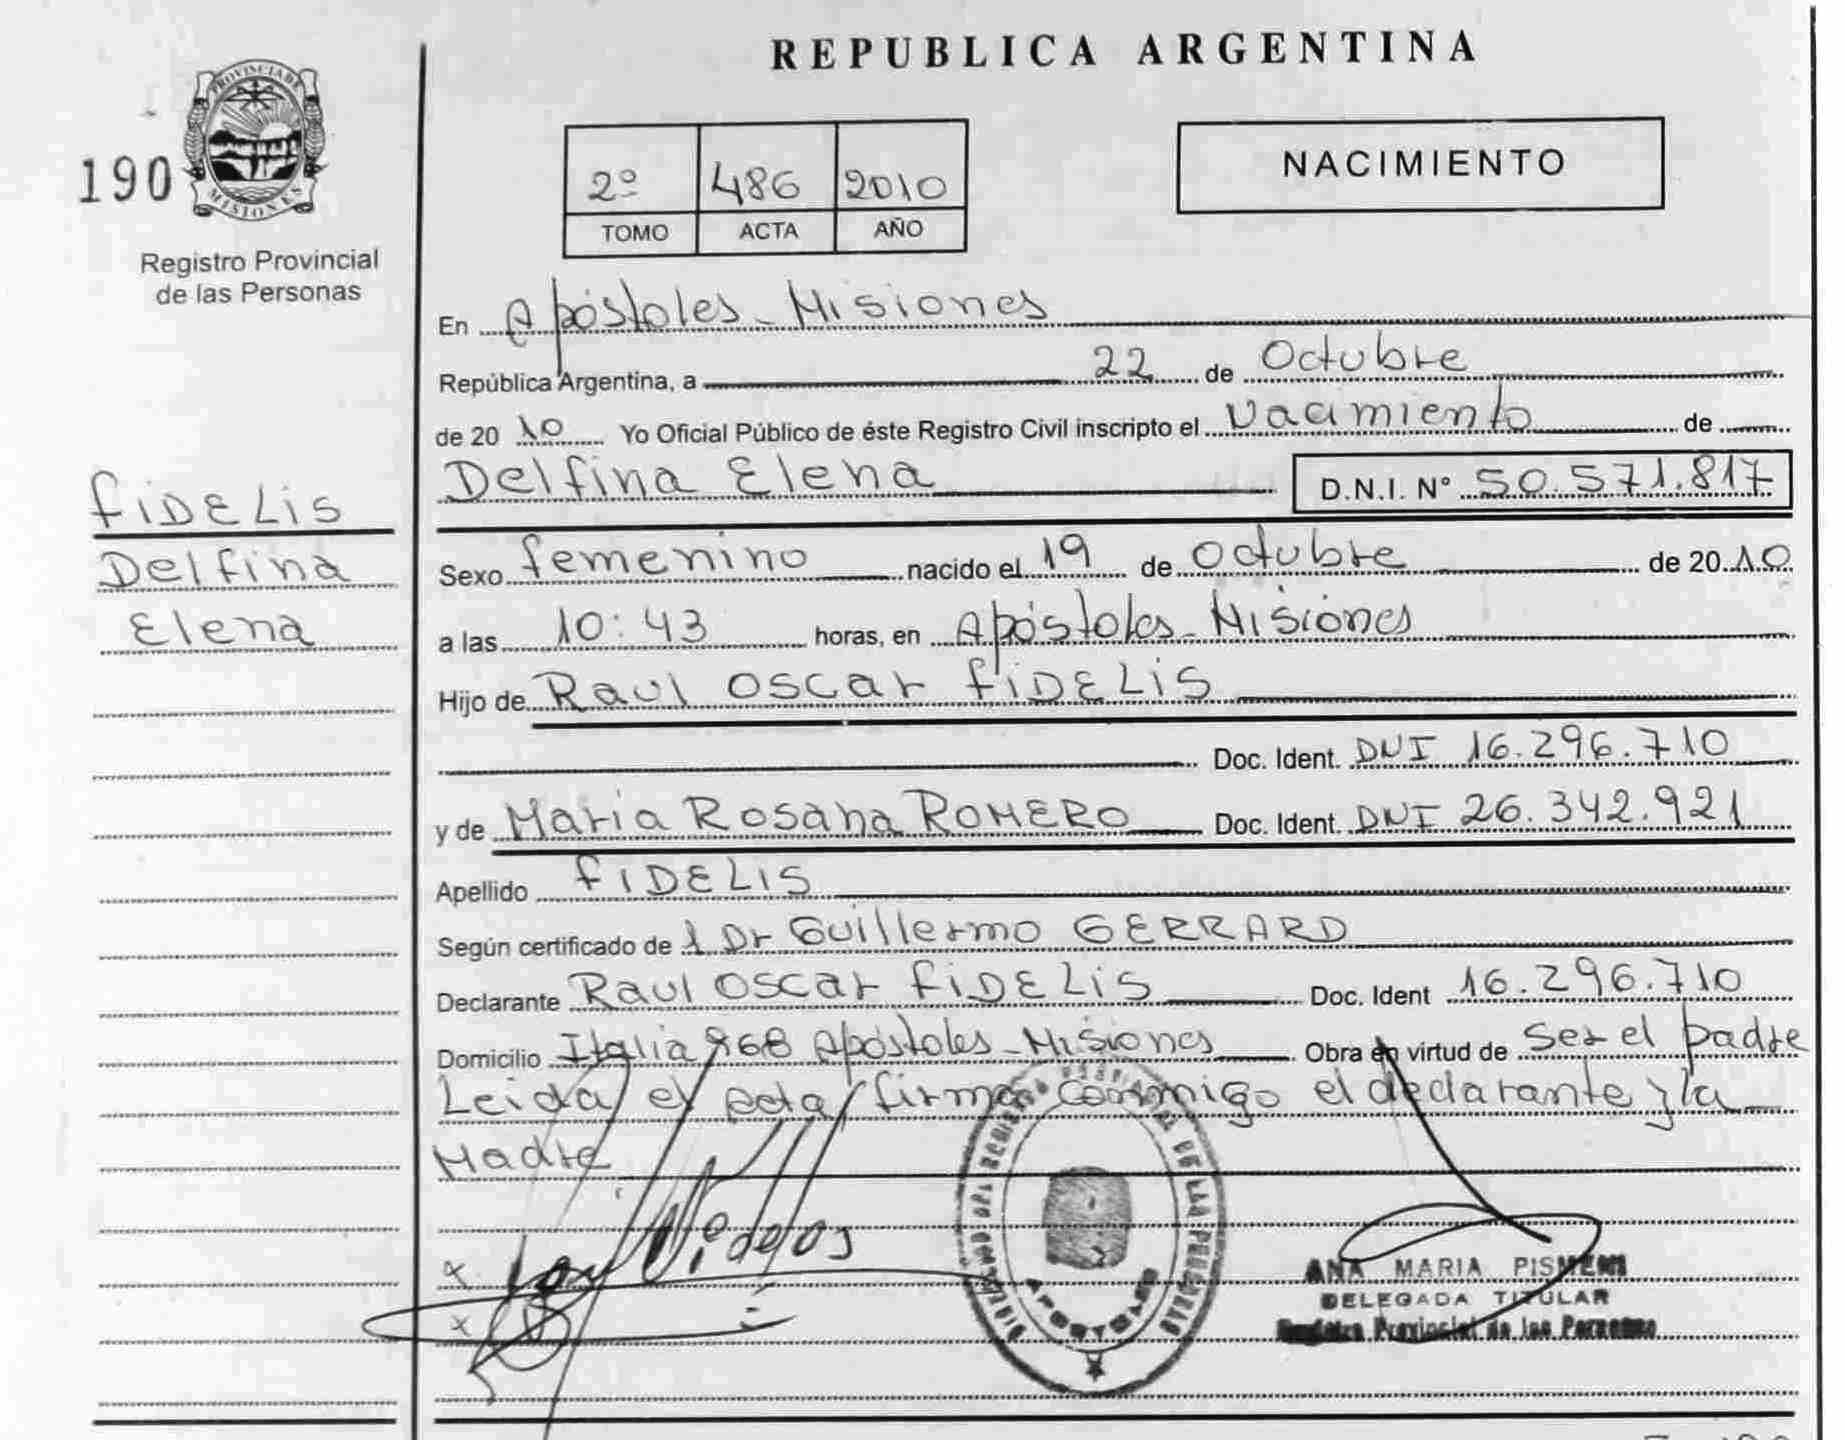 REPUBLICA ARGENTINA
PROVINCIA DE
MISIONES
190
Registro Provincial
de las Personas
2º 486 2010
TOMO ACTA AÑO
NACIMIENTO
En Apóstoles - Misiones
República Argentina, a 22 de Octubre
de 20 10 Yo Oficial Público de éste Registro Civil inscripto el Nacimiento de
Delfina Elena D.N.I. Nº 50.571.817
FIDELIS
Delfina
Elena
Sexo femenino nacido el 19 de Octubre de 20 10
a las 10:43 horas, en Apóstoles - Misiones
Hijo de Raul Oscar FIDELIS
Doc. Ident. DNI 16.296.710
y de Maria Rosana ROMERO Doc. Ident. DNI 26.342.921
Apellido FIDELIS
Según certificado de 1 Dr Guillermo GERRARD
Declarante Raul Oscar FIDELIS Doc. Ident 16.296.710
Domicilio Italia 968 Apóstoles - Misiones Obra en virtud de Ser el padre
Leida el acta firma conmigo el declarante y la
Madre
APOSTOLES
ANA MARIA PISMENI
DELEGADA TITULAR
Registro Provincial de las Personas